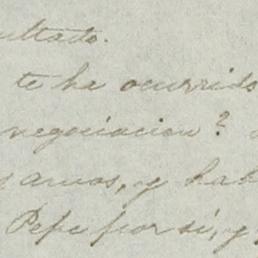 ultado.
te ha ocurrido
negociacion?
amos, y hab
Pepe por sí, y